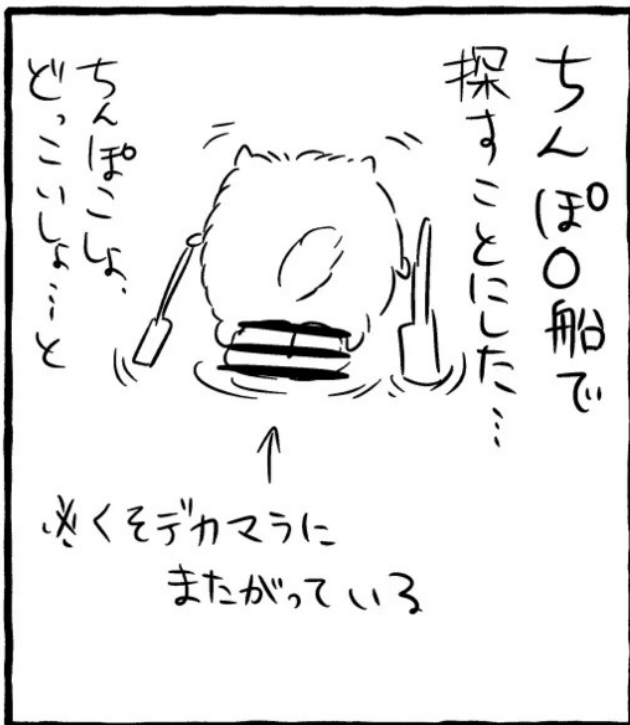 ちんぽ〇船で
探すことにした…
ちんぽこしょ、
どっこいしょ…と
※くそデカマラに
またがっている